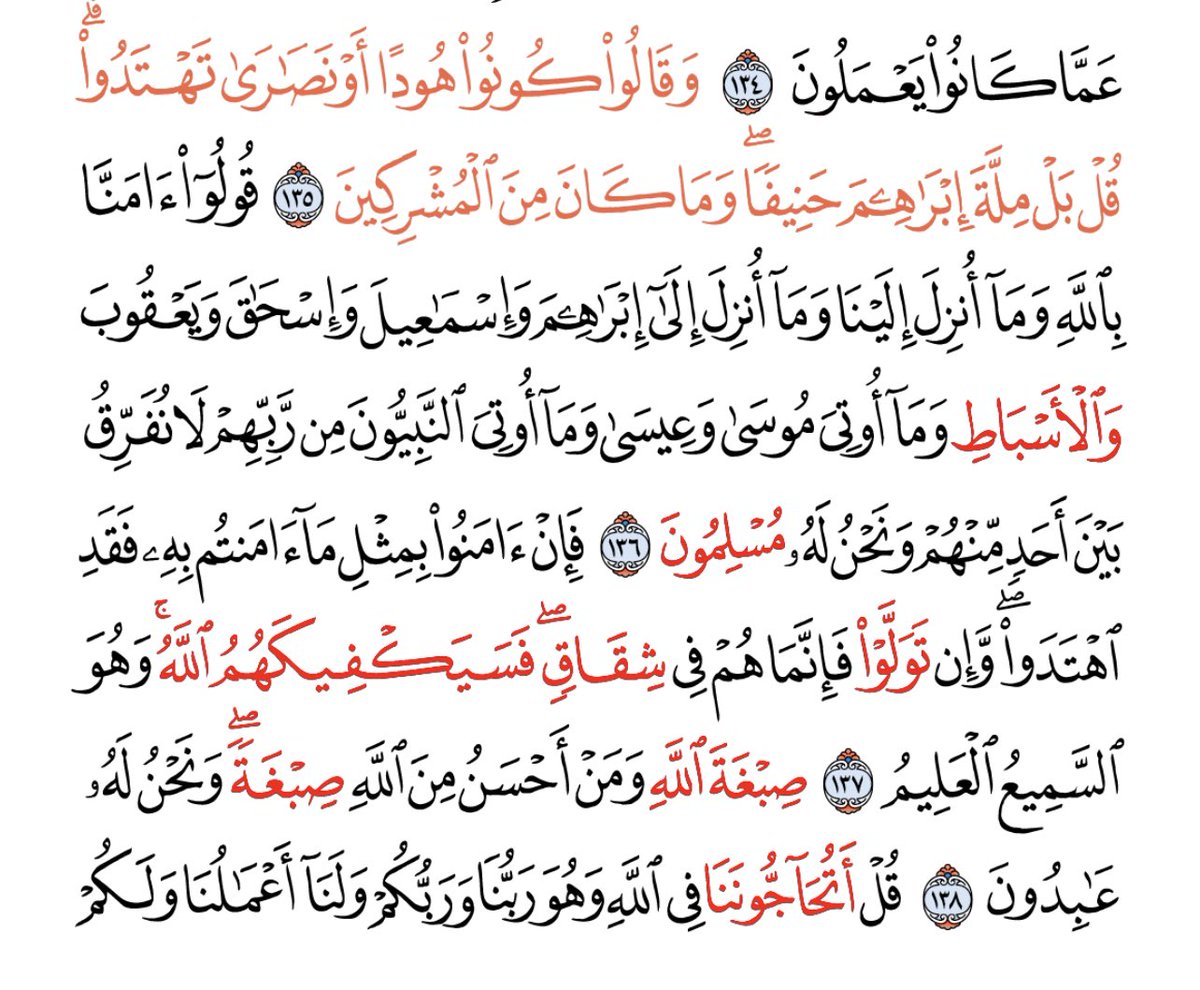 عَمَّا كَانُوا۟ يَعْمَلُونَ ١٣٤ وَقَالُوا۟ كُونُوا۟ هُودًا أَوْ نَصَٰرَىٰ تَهْتَدُوا۟ ۗ
قُلْ بَلْ مِلَّةَ إِبْرَٰهِۦمَ حَنِيفًا ۖ وَمَا كَانَ مِنَ ٱلْمُشْرِكِينَ ١٣٥ قُولُوٓا۟ ءَامَنَّا
بِٱللَّهِ وَمَآ أُنزِلَ إِلَيْنَا وَمَآ أُنزِلَ إِلَىٰٓ إِبْرَٰهِۦمَ وَإِسْمَٰعِيلَ وَإِسْحَٰقَ وَيَعْقُوبَ
وَٱلْأَسْبَاطِ وَمَآ أُوتِىَ مُوسَىٰ وَعِيسَىٰ وَمَآ أُوتِىَ ٱلنَّبِيُّونَ مِن رَّبِّهِمْ لَا نُفَرِّقُ
بَيْنَ أَحَدٍ مِّنْهُمْ وَنَحْنُ لَهُۥ مُسْلِمُونَ ١٣٦ فَإِنْ ءَامَنُوا۟ بِمِثْلِ مَآ ءَامَنتُم بِهِۦ فَقَدِ
ٱهْتَدَوا۟ ۖ وَّإِن تَوَلَّوْا۟ فَإِنَّمَا هُمْ فِى شِقَاقٍ ۖ فَسَيَكْفِيكَهُمُ ٱللَّهُ ۚ وَهُوَ
ٱلسَّمِيعُ ٱلْعَلِيمُ ١٣٧ صِبْغَةَ ٱللَّهِ وَمَنْ أَحْسَنُ مِنَ ٱللَّهِ صِبْغَةً ۖ وَنَحْنُ لَهُۥ
عَٰبِدُونَ ١٣٨ قُلْ أَتُحَآجُّونَنَا فِى ٱللَّهِ وَهُوَ رَبُّنَا وَرَبُّكُمْ وَلَنَآ أَعْمَٰلُنَا وَلَكُمْ